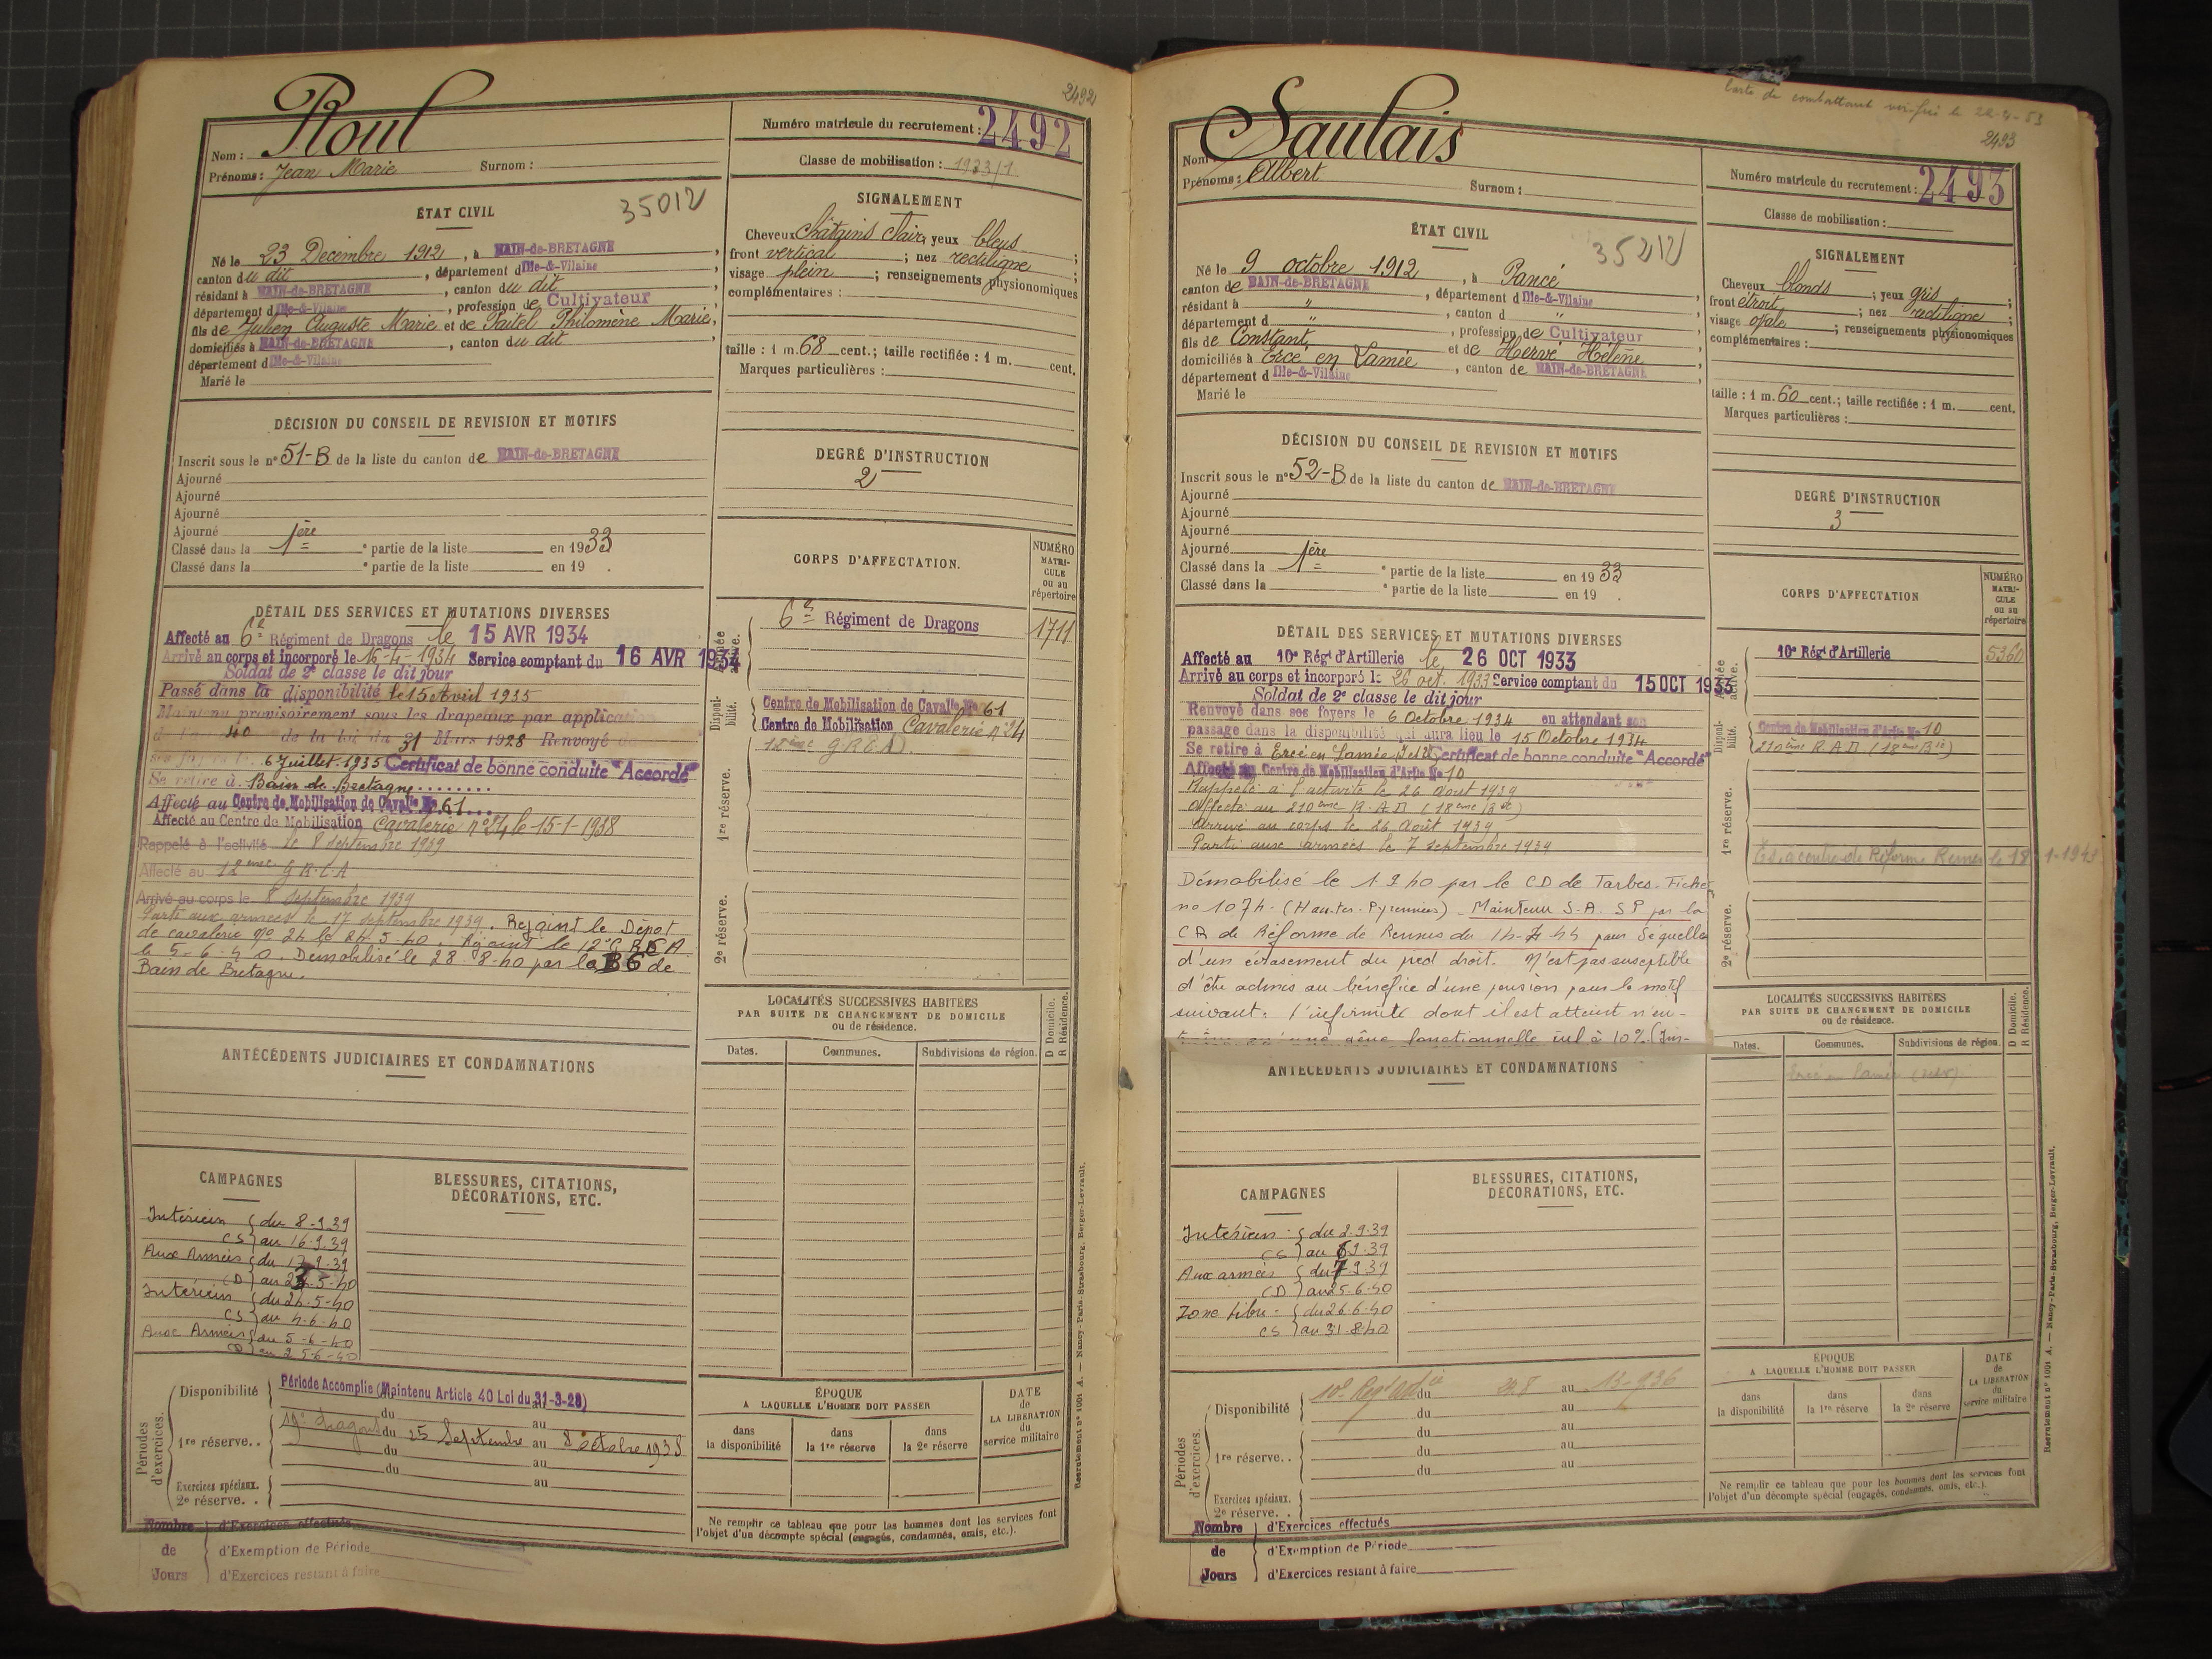 2492
Roul
Nom :
Prénoms : Jean Marie Surnom :
Numéro matricule du recrutement : 2492
Classe de mobilisation : 1933/1
ÉTAT CIVIL
35012
Né le 23 Décembre 1912, à BAIN-de-BRETAGNE,
canton du dit, département d Ille-&-Vilaine,
résidant à BAIN-de-BRETAGNE, canton du dit,
département d Ille-&-Vilaine, profession de Cultivateur
fils de Julien Auguste Marie et de Paitel Philomène Marie,
domiciliés à BAIN-de-BRETAGNE, canton du dit
département d Ille-&-Vilaine
Marié le
SIGNALEMENT
Cheveux Châtains clairs yeux bleus ;
front vertical ; nez rectiligne ;
visage plein ; renseignements physionomiques
complémentaires :
taille : 1 m. 68 cent.; taille rectifiée : 1 m. cent.
Marques particulières :
DÉCISION DU CONSEIL DE REVISION ET MOTIFS
Inscrit sous le n° 51-B de la liste du canton de BAIN-de-BRETAGNE
Ajourné
Ajourné
Ajourné
Ajourné
Classé dans la 1ère e partie de la liste en 1933
Classé dans la e partie de la liste en 19 .
DEGRÉ D'INSTRUCTION
2
CORPS D'AFFECTATION.
NUMÉRO MATRI-CULE ou au répertoire
DÉTAIL DES SERVICES ET MUTATIONS DIVERSES
Affecté au 6e Régiment de Dragons le 15 AVR 1934
Arrivé au corps et incorporé le 16-4-1934 Service comptant du 16 AVR 1934
Soldat de 2e classe le dit jour
Passé dans la disponibilité le 15 Avril 1935
Maintenu provisoirement sous les drapeaux par application
de l'art 40 de la loi du 31 Mars 1928 Renvoyé dans
ses foyers le 6 Juillet 1935 Certificat de bonne conduite "Accordé"
Se retire à Bain de Bretagne
Affecté au Centre de Mobilisation de Cavalie No 61
Affecté au Centre de Mobilisation Cavalerie n° 24 le 15-1-1938
Rappelé à l'activité le 8 septembre 1939
Affecté au 12ème G.R.C.A
Arrivé au corps le 8 septembre 1939
Parti aux armées le 17 septembre 1939. Rejoint le Dépôt
de cavalerie no 24 le 24.5.40. Rejoint le 12e G R C A
le 5-6-40. Démobilisé le 28-8-40 par la B G de
Bain de Bretagne.
Armée active.
6e Régiment de Dragons 1711
Disponibilité.
Centre de Mobilisation de Cavalie No 61
Centre de Mobilisation Cavalerie n° 24
12ème G.R.C.A.
1re réserve.
2e réserve.
LOCALITÉS SUCCESSIVES HABITÉES
PAR SUITE DE CHANGEMENT DE DOMICILE
ou de résidence.
D Domicile.
R Résidence.
Dates. Communes. Subdivisions de région.
ANTÉCÉDENTS JUDICIAIRES ET CONDAMNATIONS
CAMPAGNES
BLESSURES, CITATIONS,
DÉCORATIONS, ETC.
Intérieur du 8-9.39
CS au 16-9.39
Aux Armées du 17-9-39
(D) au 23-5-40
Intérieur du 24-5-40
CS au 4-6-40
Aux Armées du 5-6-40
D au 25-6-40
Périodes d'exercices.
Disponibilité
Période Accomplie (Maintenu Article 40 Loi du 31-3-28)
du au
1re réserve.. 19e Dragons du 25 Septembre au 8 octobre 1938
du au
du au
Exercices spéciaux.
2e réserve. .
Nombre de Jours
d'Exercices effectués
d'Exemption de Période
d'Exercices restant à faire
ÉPOQUE
A LAQUELLE L'HOMME DOIT PASSER
DATE de LA LIBERATION du service militaire
dans la disponibilité
dans la 1re réserve
dans la 2e réserve
Ne remplir ce tableau que pour les hommes dont les services font
l'objet d'un décompte spécial (engagés, condamnés, omis, etc.).
Recrutement n° 1001 A. — Nancy-Paris-Strasbourg, Berger-Levrault.
Carte de combattant vérifié le 22-4-53
2493
Saulais
Nom :
Prénoms : Albert Surnom :
Numéro matricule du recrutement : 2493
Classe de mobilisation :
ÉTAT CIVIL
35212
Né le 9 octobre 1912, à Pancé
canton de BAIN-de-BRETAGNE, département d Ille-&-Vilaine,
résidant à ", canton d "
département d ", profession de Cultivateur
fils de Constant, et de Hervé Hélène
domiciliés à Ercé en Lamée, canton de BAIN-de-BRETAGNE,
département d Ille-&-Vilaine
Marié le
SIGNALEMENT
Cheveux blonds ; yeux gris ;
front étroit ; nez rectiligne ;
visage ovale ; renseignements physionomiques
complémentaires :
taille : 1 m. 60 cent.; taille rectifiée : 1 m. cent.
Marques particulières :
DÉCISION DU CONSEIL DE REVISION ET MOTIFS
Inscrit sous le n° 52-B de la liste du canton de BAIN-de-BRETAGNE
Ajourné
Ajourné
Ajourné
Ajourné
Classé dans la 1ère e partie de la liste en 1933
Classé dans la e partie de la liste en 19 .
DEGRÉ D'INSTRUCTION
3
CORPS D'AFFECTATION
NUMÉRO MATRI-CULE ou au répertoire
DÉTAIL DES SERVICES ET MUTATIONS DIVERSES
Affecté au 10e Régt d'Artillerie le 26 OCT 1933
Arrivé au corps et incorporé le 26 oct. 1933 Service comptant du 15 OCT 1933
Soldat de 2e classe le dit jour
Renvoyé dans ses foyers le 6 Octobre 1934 en attendant son
passage dans la disponibilité qui aura lieu le 15 Octobre 1934
Se retire à Ercé en Lamée I et V Certificat de bonne conduite "Accordé"
Affecté au Centre de Mobilisation d'Artie No 10
Rappelé à l'activité le 26 Août 1939
Affecté au 210ème R.A.D (18ème Bie)
Arrivé au corps le 26 Août 1939
Parti aux armées le 7 septembre 1939
Démobilisé le 1 9 40 par le CD de Tarbes. Fiche
no 1074. (Hautes-Pyrennées). Maintenu S.A. SP par la
CR de Réforme de Rennes du 14-7-44 pour Séquelles
d'un écrasement du pied droit. N'est pas susceptible
d'être admis au bénéfice d'une pension pour le motif
suivant: l'infirmité dont il est atteint n'en-
traîne qu'une gêne fonctionnelle inf à 10%. (Ins-
Armée active.
10e Régt d'Artillerie 5360
Disponibilité.
Centre de Mobilisation d'Artie No 10
210ème R.A.D (18ème Bie)
1re réserve.
centre de Réforme Rennes le 18-1-1943
2e réserve.
LOCALITÉS SUCCESSIVES HABITÉES
PAR SUITE DE CHANGEMENT DE DOMICILE
ou de résidence.
D Domicile.
R Résidence.
Dates. Communes. Subdivisions de région.
Ercé en Lamée
ANTÉCÉDENTS JUDICIAIRES ET CONDAMNATIONS
CAMPAGNES
BLESSURES, CITATIONS,
DÉCORATIONS, ETC.
Intérieur du 2.9.39
CS au 6 9.39
Aux armées du 7 9 39
(D) au 25-6-40
Zone libre du 26-6-40
CS au 31.8.40
Périodes d'exercices.
Disponibilité 10e Regt Artie du 24 8 au 13-9 36
du au
du au
1re réserve.. du au
du au
Exercices spéciaux.
2e réserve. .
Nombre de Jours
d'Exercices effectués
d'Exemption de Période
d'Exercices restant à faire
ÉPOQUE
A LAQUELLE L'HOMME DOIT PASSER
DATE de LA LIBERATION du service militaire
dans la disponibilité
dans la 1re réserve
dans la 2e réserve
Ne remplir ce tableau que pour les hommes dont les services font
l'objet d'un décompte spécial (engagés, condamnés, omis, etc.).
Recrutement n° 1001 A. — Nancy-Paris-Strasbourg, Berger-Levrault.